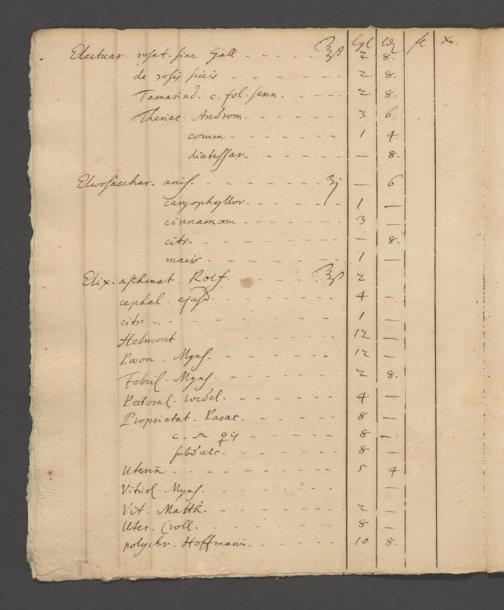 lgl ldz fl Xr.
Electuar. rosat. sine Gall - - ℥ß 2 8.
de rosis siccis - - 2 8.
Tamarind. c. fol. senn. - - 2 8.
Theriac. Androm. - - 3 6.
comm. - - 1 4.
diatessar. - - — 8.
Elaeosacchar. anis. - - ʒj — 6
caryophyllor. - - 1 —
cinnamom - - 3 —
citr. - - — 8.
macis - - 1 —
Elix. asthmat. Rolf. - - ℥ß 2
cephal. ejusd. - - 4 —
citri - - 1 —
Helmont - - 12 —
Paeon. Myns. - - 12 —
Febril. Myns. - - 2 8.
Pectoral. Wedel. - - 4 —
Proprietat. Parac. - - 8 —
c. - - 8 —
- - 8 —
Uterin. - - 5 4
Vitriol. Myns. - - —
Vit. Matth. - - 2 —
Uter. Croll. - - 8 —
polychr. Hoffmanni. - - 10 8.